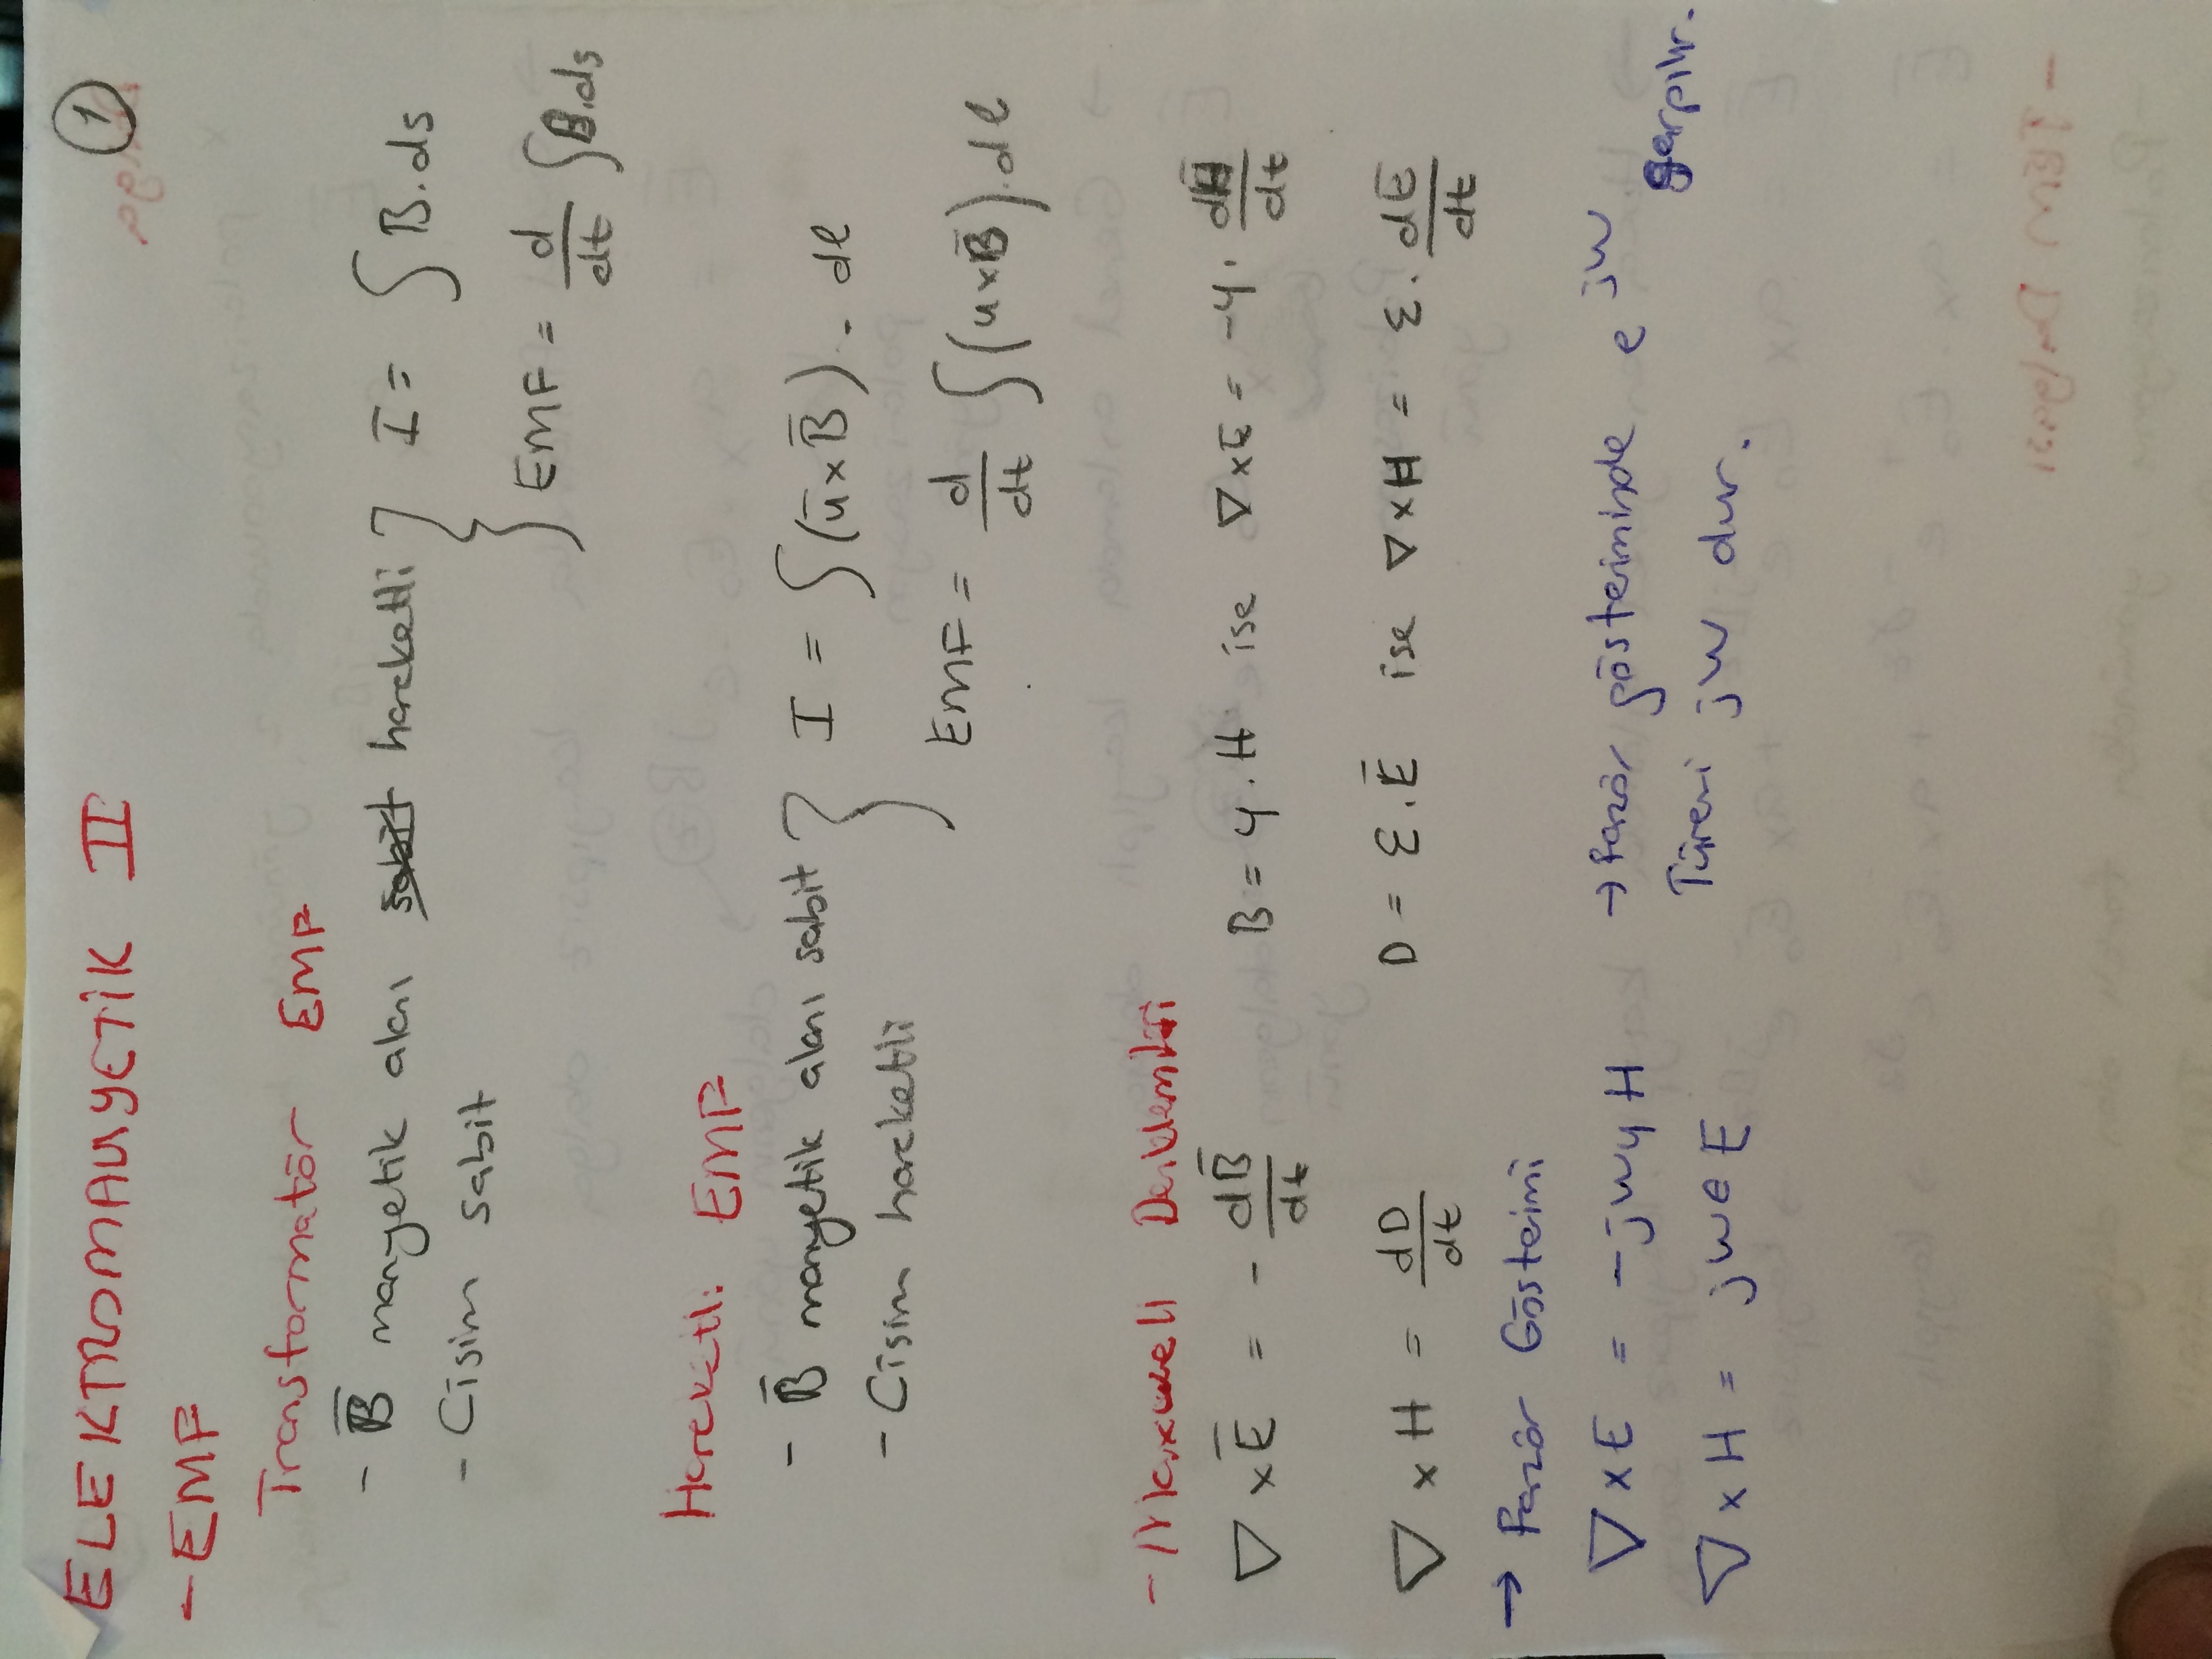 ELEKTROMANYETİK II
1
- EMF
Transformatör EMF
- B̅ manyetik alanı sabit hareketli } I = ∫ B.ds
- Cisim sabit
EMF = d/dt ∫ B.ds
Hareketli EMF
- B̅ manyetik alanı sabit } I = ∫ (u̅ x B̅) . dl
- Cisim hareketli
EMF = d/dt ∫ (u x B̅) . dl
- Maxwell Denklemleri
∇ x E̅ = - dB̅/dt B = μ . H ise ∇ x E = -μ . dH̅/dt
∇ x H = dD/dt D = ε . E̅ ise ∇ x H = ε . dE/dt
→ Fazör Gösterimi
∇ x E = -jwμH → Fazör gösteriminde e^jw çarpılır.
∇ x H = jwεE Türevi jw dur.